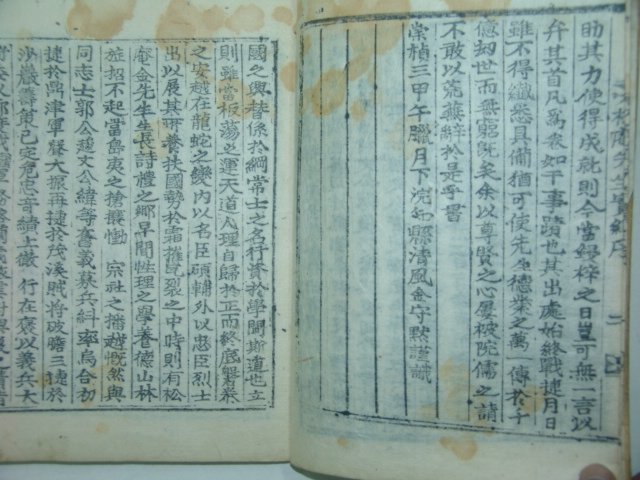 助其力使得成就則今當鋟梓之日豈可無一言以
弁其首凡爲卷如干事蹟也其出處始終戰捷月日
雖不得纖悉具備猶可使先生德業之萬一傳於千
億刼世而無窮旣矣余以尊賢之心屢被院儒之請
不敢以荒蕪辭於是乎書
崇禎三甲午臘月下浣知縣淸風金字黙謹識
國之興替係於綱常士之名行資於學聞斯道也立
則雖當板蕩之運天道人理自歸於正而終底磐泰
之安越在龍蛇之變內以名臣碩輔外以忠臣烈士
出以展其所養扶國勢於霜摧雹裂之中時則有松
庵金先生生長詩禮之鄕早聞性理之學養德山林
旌招不起當島夷之搶攘慟 宗社之播越慨然與
同志士郭公䞭文公緯等奮義募兵糾率烏合初
捷於鼎津軍聲大振再捷於茂溪賊將破膽三捷於
沙巖籌策已定危忠音績上徹 行在褒以義兵大